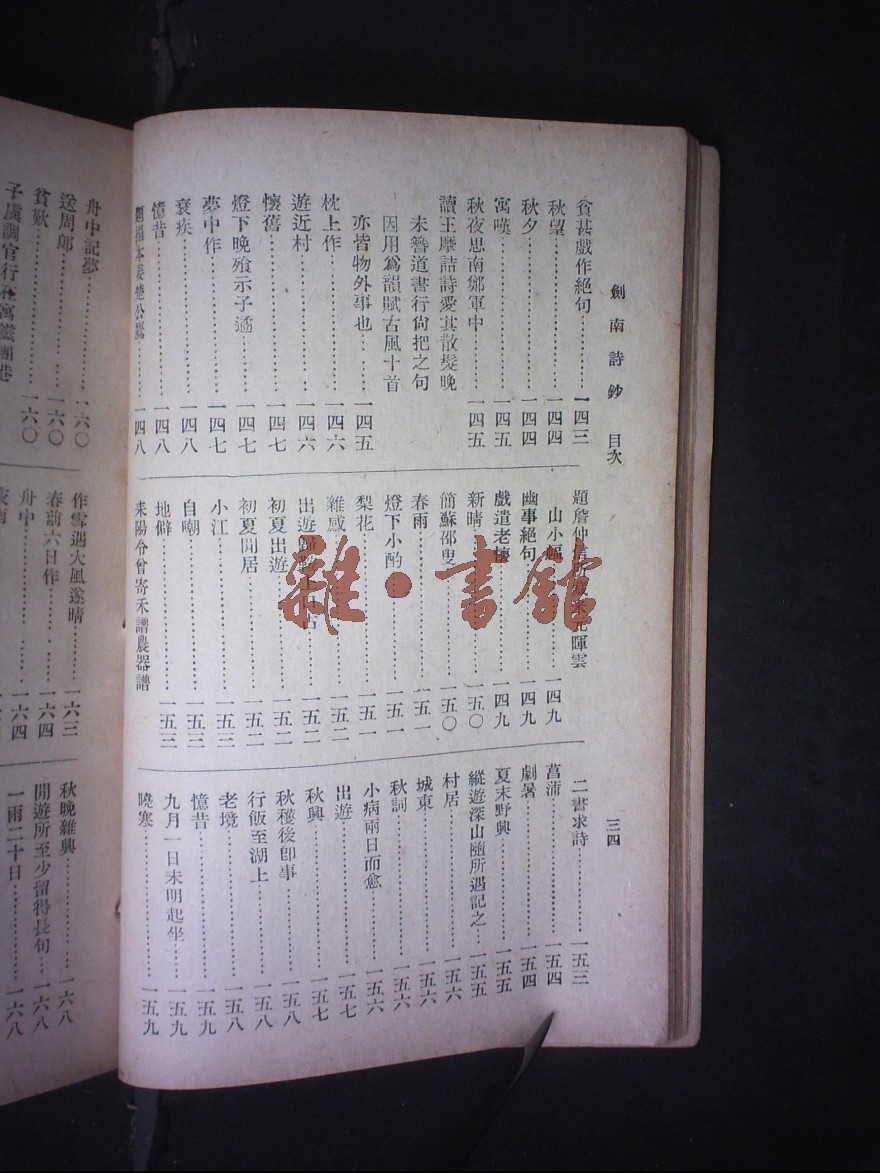 劍南詩鈔 目次
三四
貧甚戲作絕句…一四三
秋望…一四四
秋夕…一四四
寓嘆…一四五
秋夜思南鄭軍中…一四五
讀王摩詰詩愛其散髮晚
未簪道書行尙把之句
因用爲韻賦古風十首
亦皆物外事也…一四五
枕上作…一四六
遊近村…一四六
懷舊…一四七
燈下晚飧示子遹…一四七
夢中作…一四七
衰疾…一四八
憶昔…一四八
公…一四八
題詹仲信所藏米元暉雲
山小幅…一四九
幽事絕句…一四九
戲遣老懷…一四九
新晴…一五〇
簡蘇邵叟…一五〇
春雨…一五一
燈下小酌…一五一
梨花…一五一
雜感…一五二
出遊…一五二
初夏出遊…一五二
初夏閒居…一五二
小江…一五三
自嘲…一五三
地僻…一五三
耒陽令曾寄禾譜農器譜
二書求詩…一五三
菖蒲…一五四
劇暑…一五四
夏末野興…一五五
縱遊深山隨所遇記之…一五五
村居…一五六
城東…一五六
秋詞…一五六
小病兩日而愈…一五六
出遊…一五七
秋興…一五七
秋穫後卽事…一五八
行飯至湖上…一五八
老境…一五八
憶昔…一五九
九月一日未明起坐…一五九
曉寒…一五九
舟中記夢…一六〇
送周郎…一六〇
貧歎…一六〇
子虡調官行
作雪遇大風遂晴…一六三
春前六日作…一六四
舟中…一六四
秋晚雜興…一六八
閒遊所至少留得長句…一六八
一雨二十日…一六八
雜·書館